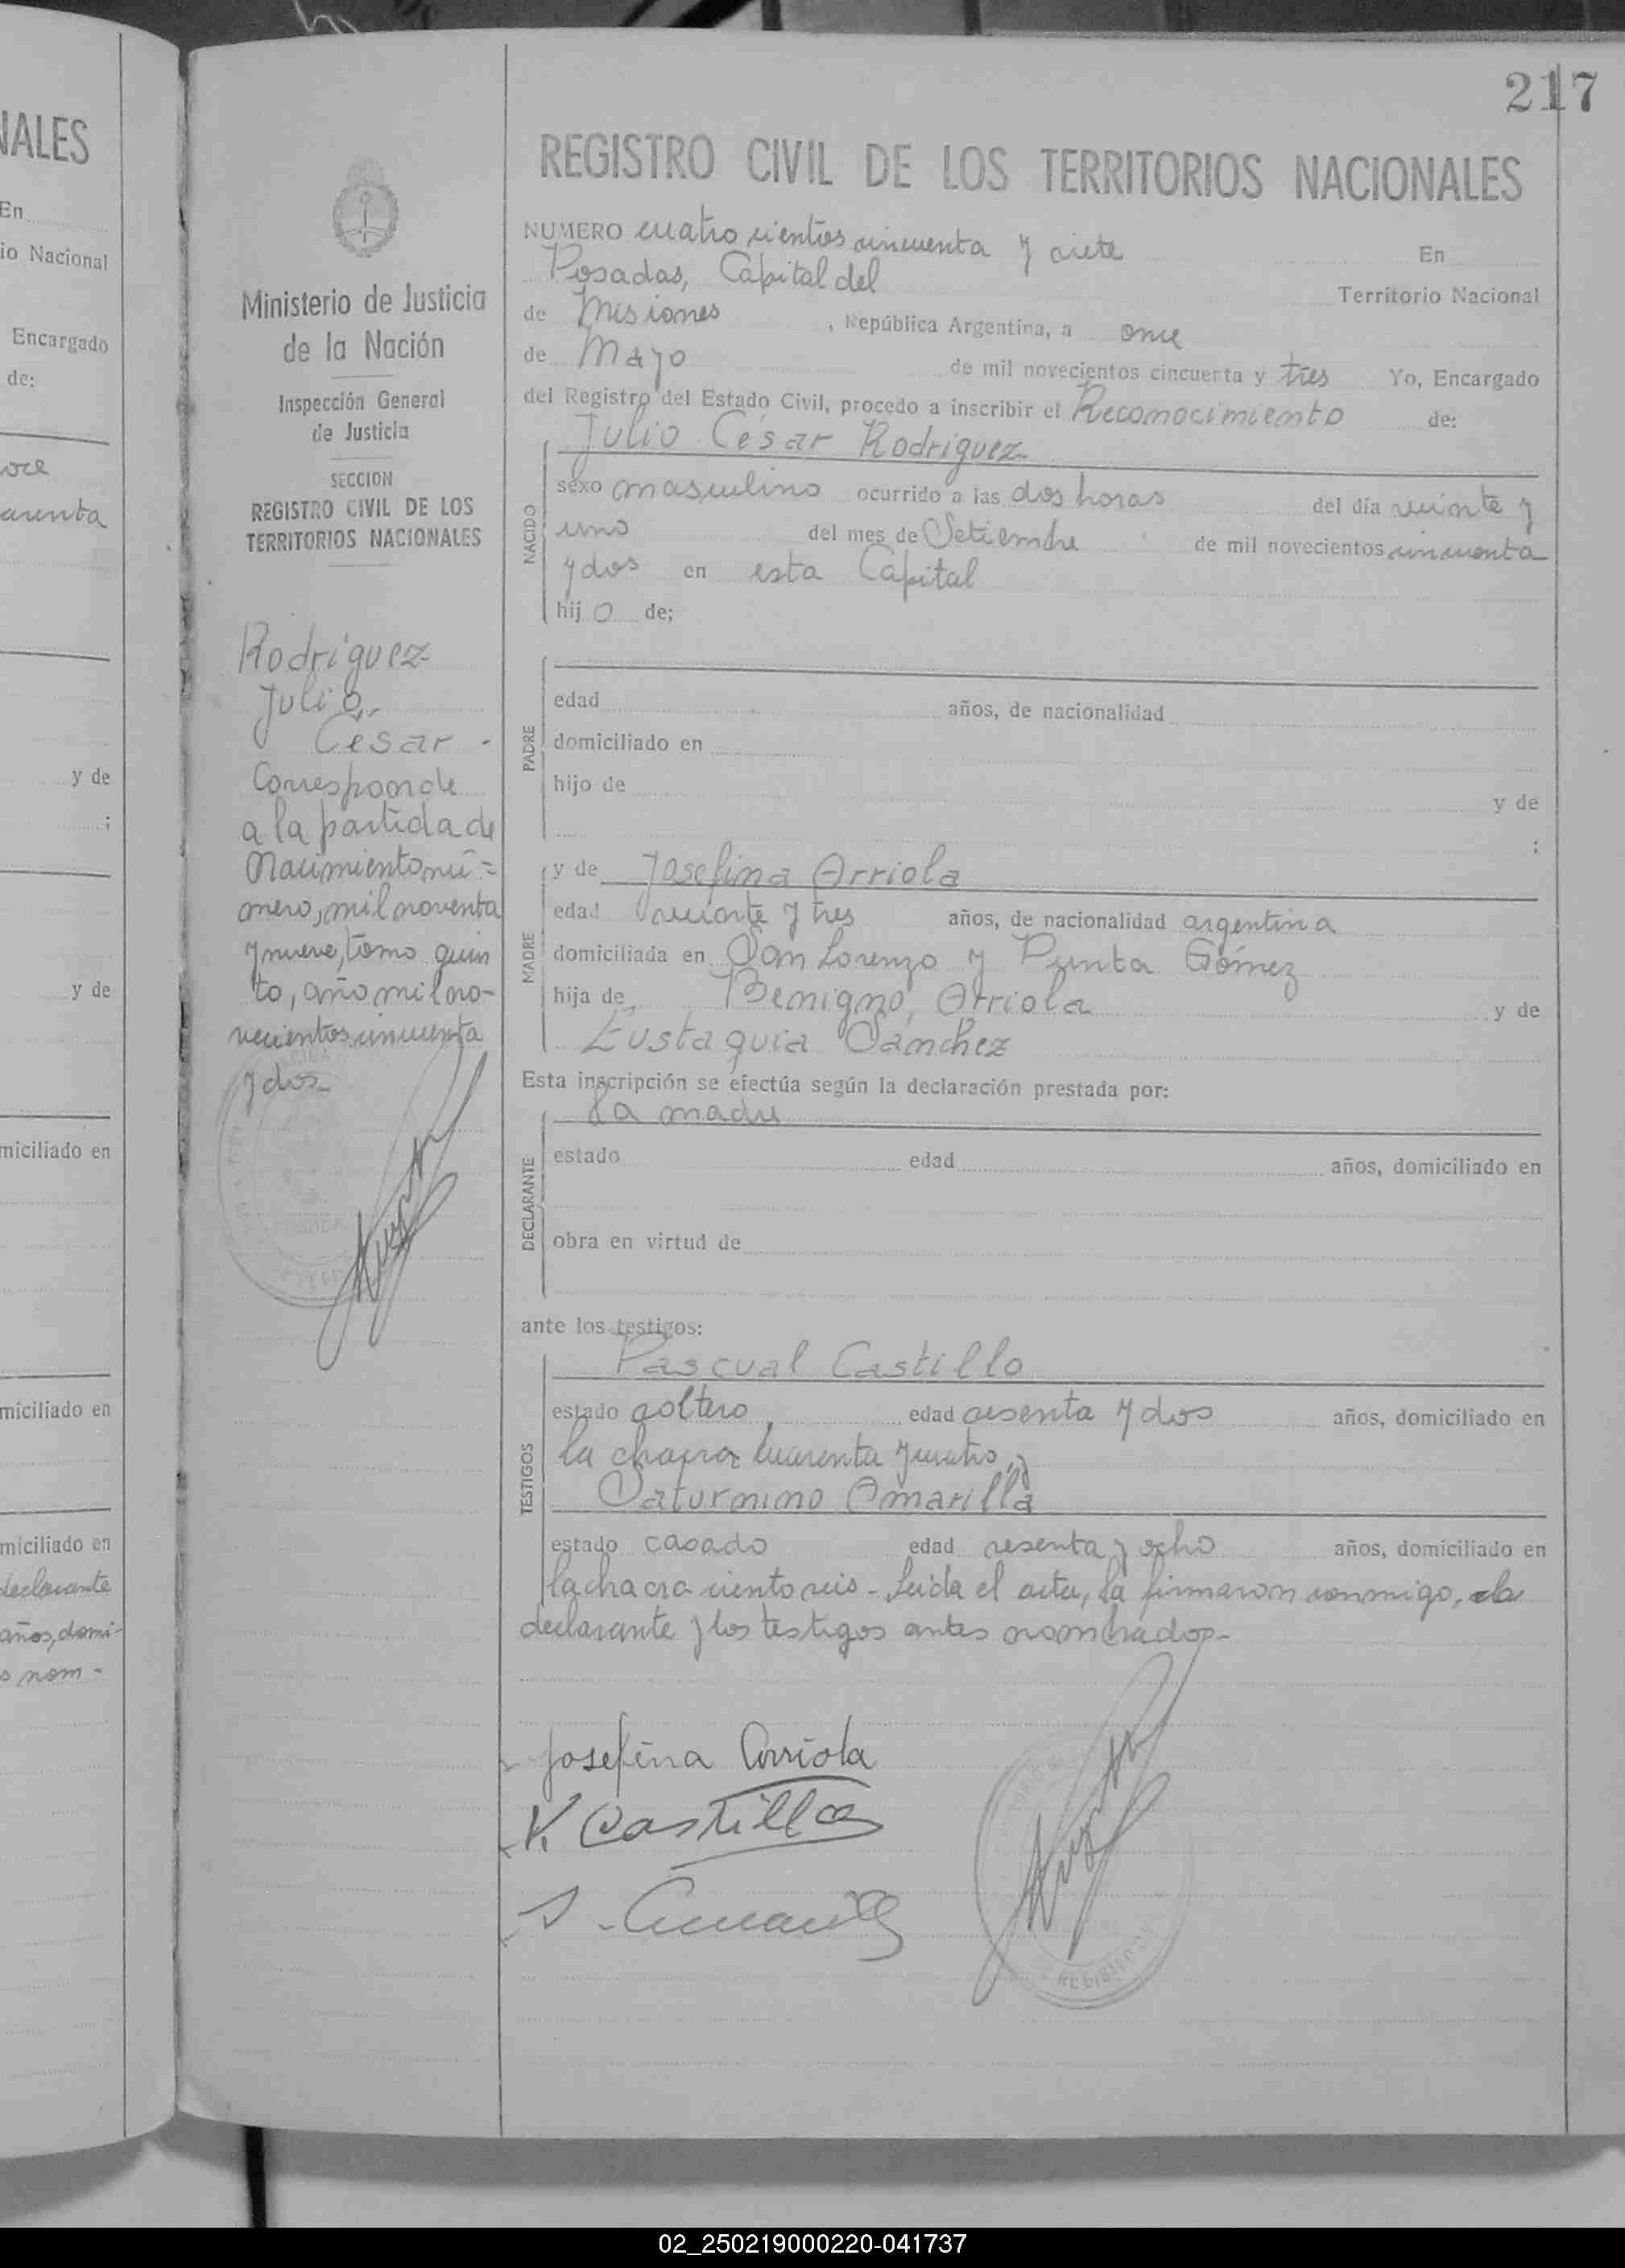 217
NALES
En
io Nacional
Encargado
de:
y de
;
y de
miciliado en
miciliado en
miciliado en
declarante
años, domi-
s nom-
Ministerio de Justicia
de la Nación
Inspección General
de Justicia
SECCION
REGISTRO CIVIL DE LOS
TERRITORIOS NACIONALES
Rodríguez
Julio
Cesar -
Corresponde
a la partida de
Nacimiento nú=
mero, mil noventa
y nueve, tomo quin
to, año mil no-
vecientos cincuenta
y dos
REGISTRO CIVIL DE LOS TERRITORIOS NACIONALES
NUMERO cuatro cientos cincuenta y siete En
Posadas, Capital del Territorio Nacional
de Misiones , República Argentina, a once
de Mayo de mil novecientos cincuenta y tres Yo, Encargado
del Registro del Estado Civil, procedo a inscribir el Reconocimiento de:
Julio César Rodríguez
NACIDO
sexo masculino ocurrido a las dos horas del día veinte y
uno del mes de Setiembre de mil novecientos cincuenta
y dos en esta Capital
hijo de;
PADRE
edad años, de nacionalidad
domiciliado en
hijo de y de
;
MADRE
y de Josefina Arriola
edad veinte y tres años, de nacionalidad argentina
domiciliada en San Lorenzo y Punta Gómez
hija de Benigno Arriola y de
Eustaquia Sánchez
Esta inscripción se efectúa según la declaración prestada por:
La madre
DECLARANTE
estado edad años, domiciliado en
obra en virtud de
ante los testigos:
TESTIGOS
Pascual Castillo
estado soltero, edad sesenta y dos años, domiciliado en
la chacra cuarenta y cuatro, y
Saturnino Amarilla
estado casado edad sesenta y ocho años, domiciliado en
la chacra ciento seis - Leída el acta, la firmaron conmigo, la
declarante y los testigos antes nombrados-
Josefina Arriola
Castillo
REGISTRO
02_250219000220-041737